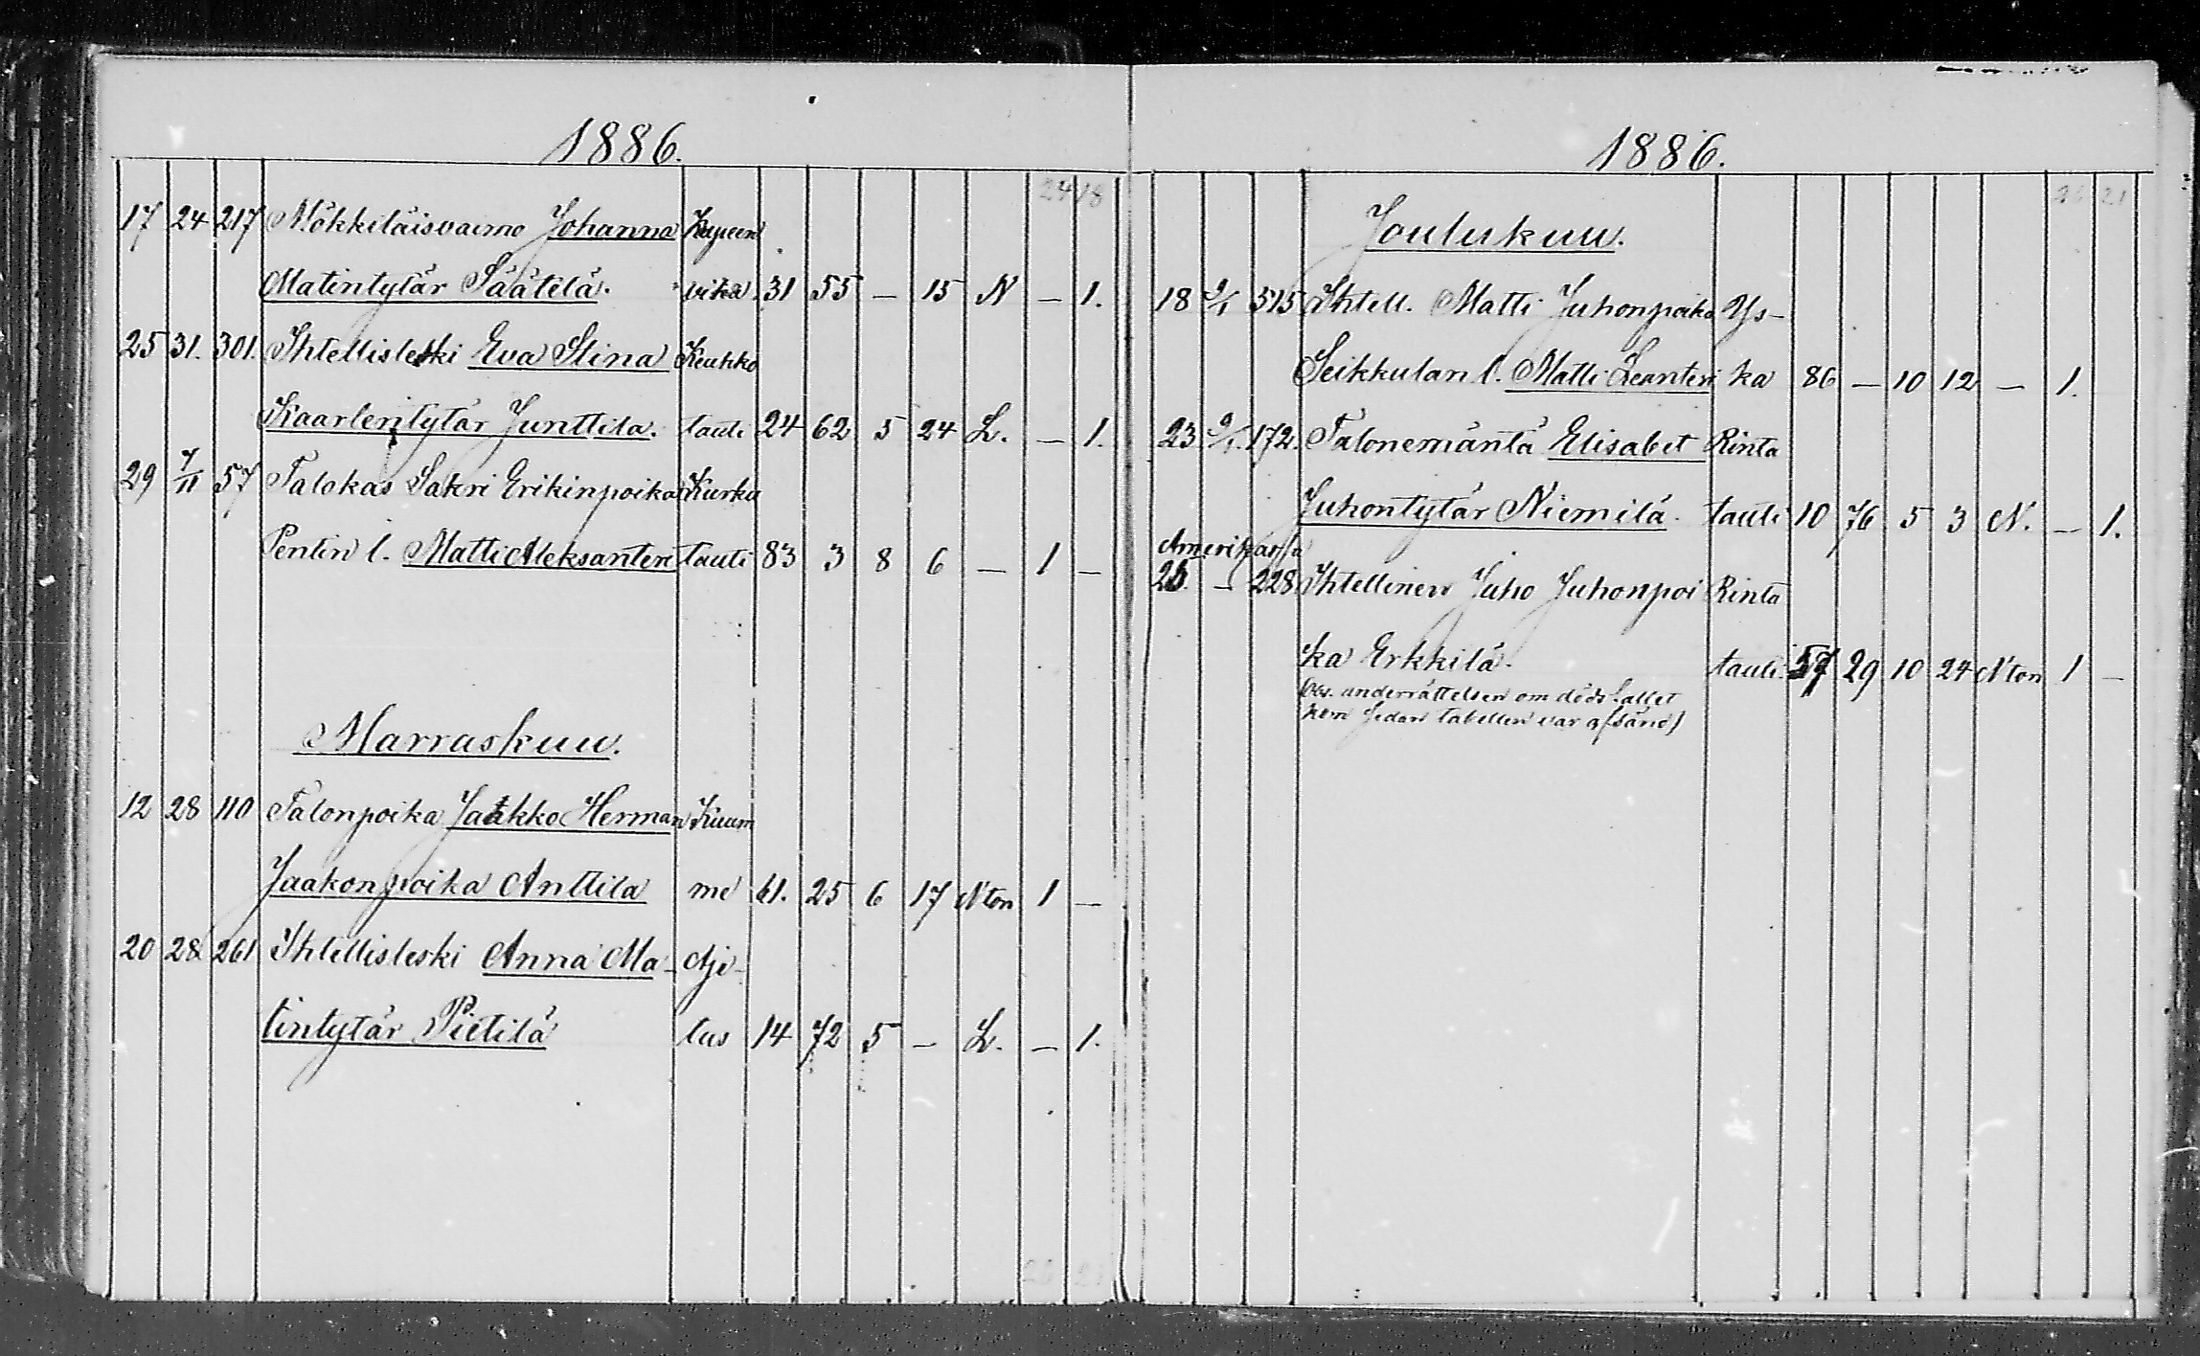 1886.
24 18
17 24 217 Mökkiläisvaimo Johanna
Matintytär Säätelä. vika 31 55 — 15 N — 1.
25 31. 301. Ihtellisleski Eva Stina Keuhko
Kaarlentytär Junttila. tauti 24 62 5 24 L. — 1.
29 7/11 57 Talokas Sakri Erikinpoika Kurku
Pentin l. Matti Aleksanteri tauti 83 3 8 6 — 1 —
Marraskuu.
12 28 110 Talonpoika Jaakko Herman Kuum
Jaakonpoika Anttila me 61. 25 6 17 Nton 1 —
20 28 261 Ihtellisleski Anna Ma- Aje-
tintytär Pietilä tus 14 72 5 — L. — 1.
1886.
26 21
Joulukuu.
18 2/1 515 Ihtell. Matti Juhonpoika Ys-
Seikkulan l. Matti Leanteri ka 86 — 10 12 — 1.
23 2/1. 172. Talonemäntä Elisabet Rinta
Juhontytär Niemilä. tauti 10 76 5 3 N. — 1.
Amerikassa
— 228 Ihtellinen Juho Juhonpoi Rinta
ka Erkkilä. tauti. 57 29 10 24 Nton 1 —
Obs. underrättelsen om dödsfallet
kom sedan tabellen var afsänd)